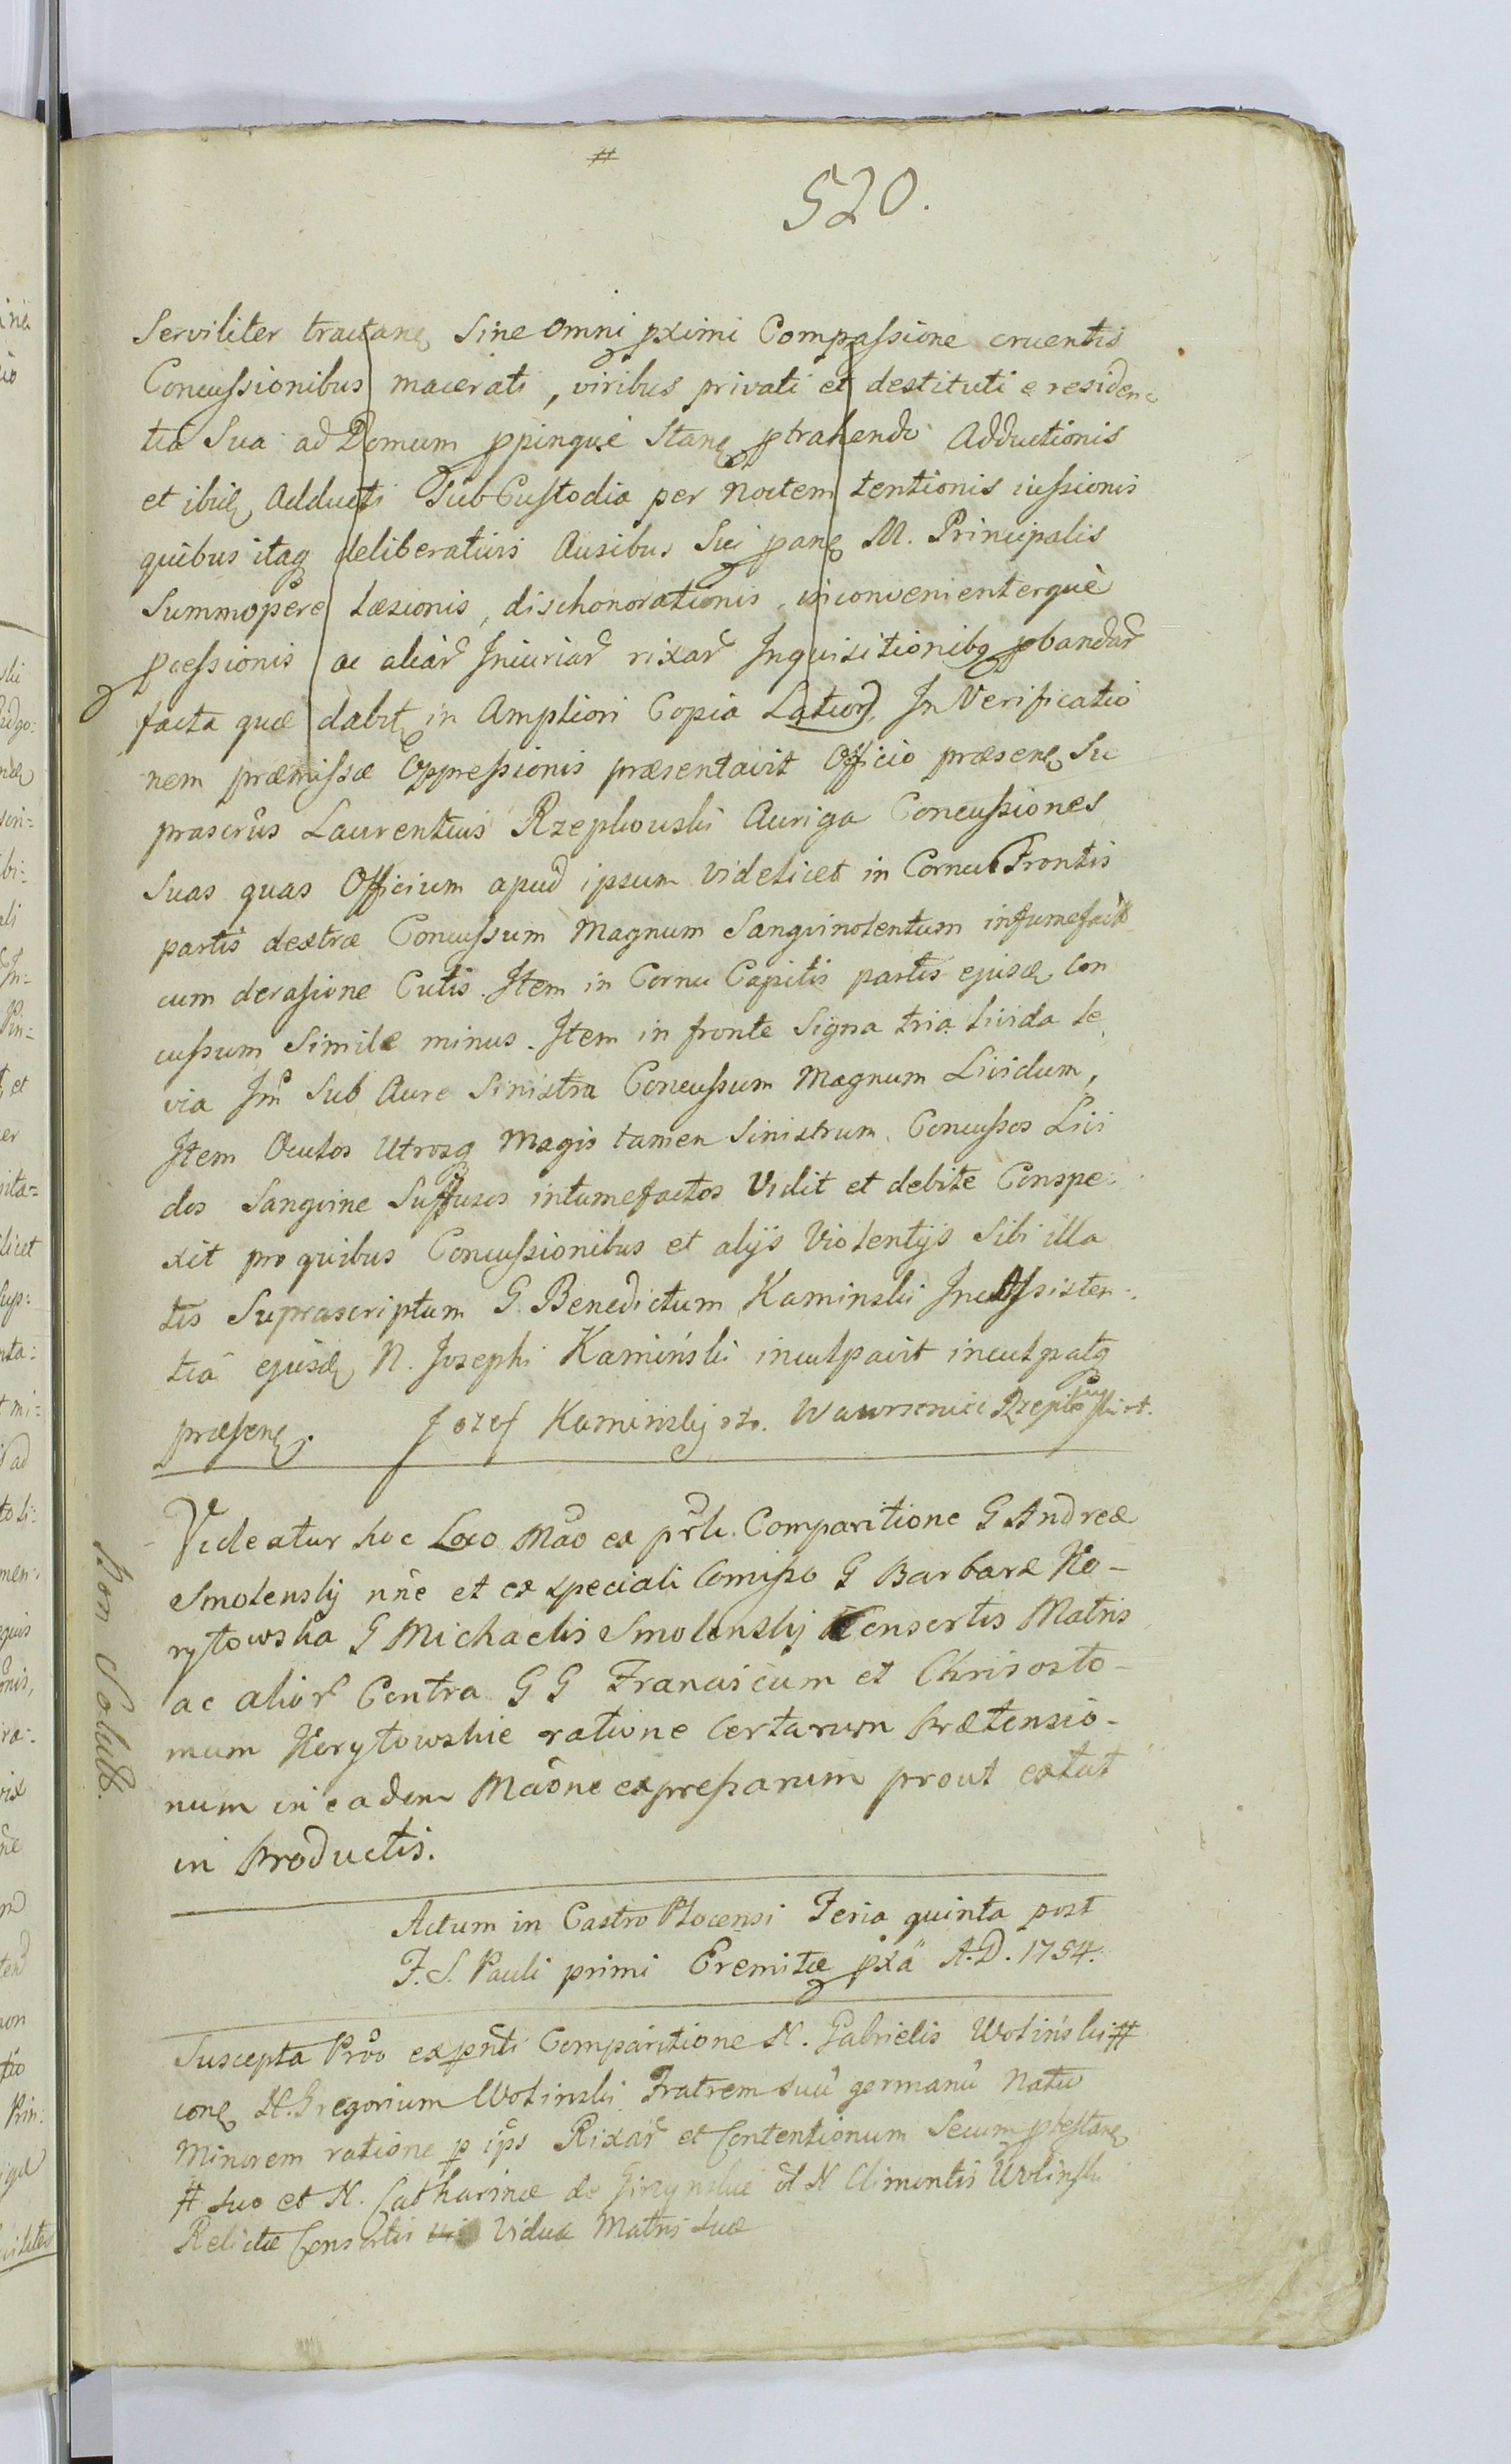 #
520.
Serviliter tractanę Sine omni pximi Compassione cruentis
Concussionibus macerati, viribus privati et destituti e residen-
tia Sua ad Domum ppinque Stanę ptrahendo Adductionis
et ibidę Adducti Sub Custodia per Noctem tentionis iussionis
quibus itaq deliberativis Ausibus Sui panę M. Principalis
Summopere Læsionis, dischonorationis, inconvenienterque
pcessionis ac aliar Iniuriar rixar Inquisitionibq pbandar
facta quæ dabit in Ampliori Copia Latiori. In Verificatio
nem præmissæ Oppressionis præsentavit Officio præsenę Su
prascrus Laurentius Rzepkowski Auriga Concussiones
Suas quas Officium apud ipsum videlicet in Cornu Frontis
partis dextræ Concussum Magnum Sanguinolentum intumefact
cum derasione Cutis. Item in Cornu Capitis partis ejusdę Con
cussum Simile minus. Item in fronte Signa tria livida le
via Im Sub Aure Sinistra Concussum Magnum Lividum,
Item Oculos Utrosq Magis tamen Sinistrum, Concussos Livi
dos Sanguine Suffusos intumefactos Vidit et debite Conspe-
xit pro quibus Concussionibus et alijs Violentijs Sibi illa
tis Suprascriptum G. Benedictum Kaminski In Assisten-
tiâ ejusdę N. Josephi Kamiński inculpavit inculpatq
præsenę. Jozef Kaminskij Wawrzeniec
Videatur hoc Loco Mao ex prli. Comparitione G Andreæ
Smolenskij nne et ex speciali Comisso G Barbaræ Ko-
rytowska G Michaelis Smolenskij Consortis Matris
ac alior Contra G G Franciscum et Chrisosto-
mum Korytowskie ratione certarum prætensio-
num in eadem Maone expressarum prout extat
in productis.
Non Solut.
Actum in Castro Plocensi Feria quinta post
F. S. Pauli primi Eremitæ pxa A.D. 1754.
Suscepta Prõo ex pnti Comparitione N. Gabrielis Wolinski #
conę N. Gregorium Wolinski Fratrem suũ germanũ Natu
Minorem ratione p ips Rixar et Contentionum Secum pstanę
# Suo et N. Catharinæ de olt N Climontis Wolinski
Relictæ Consortis Viduæ Matris Suæ